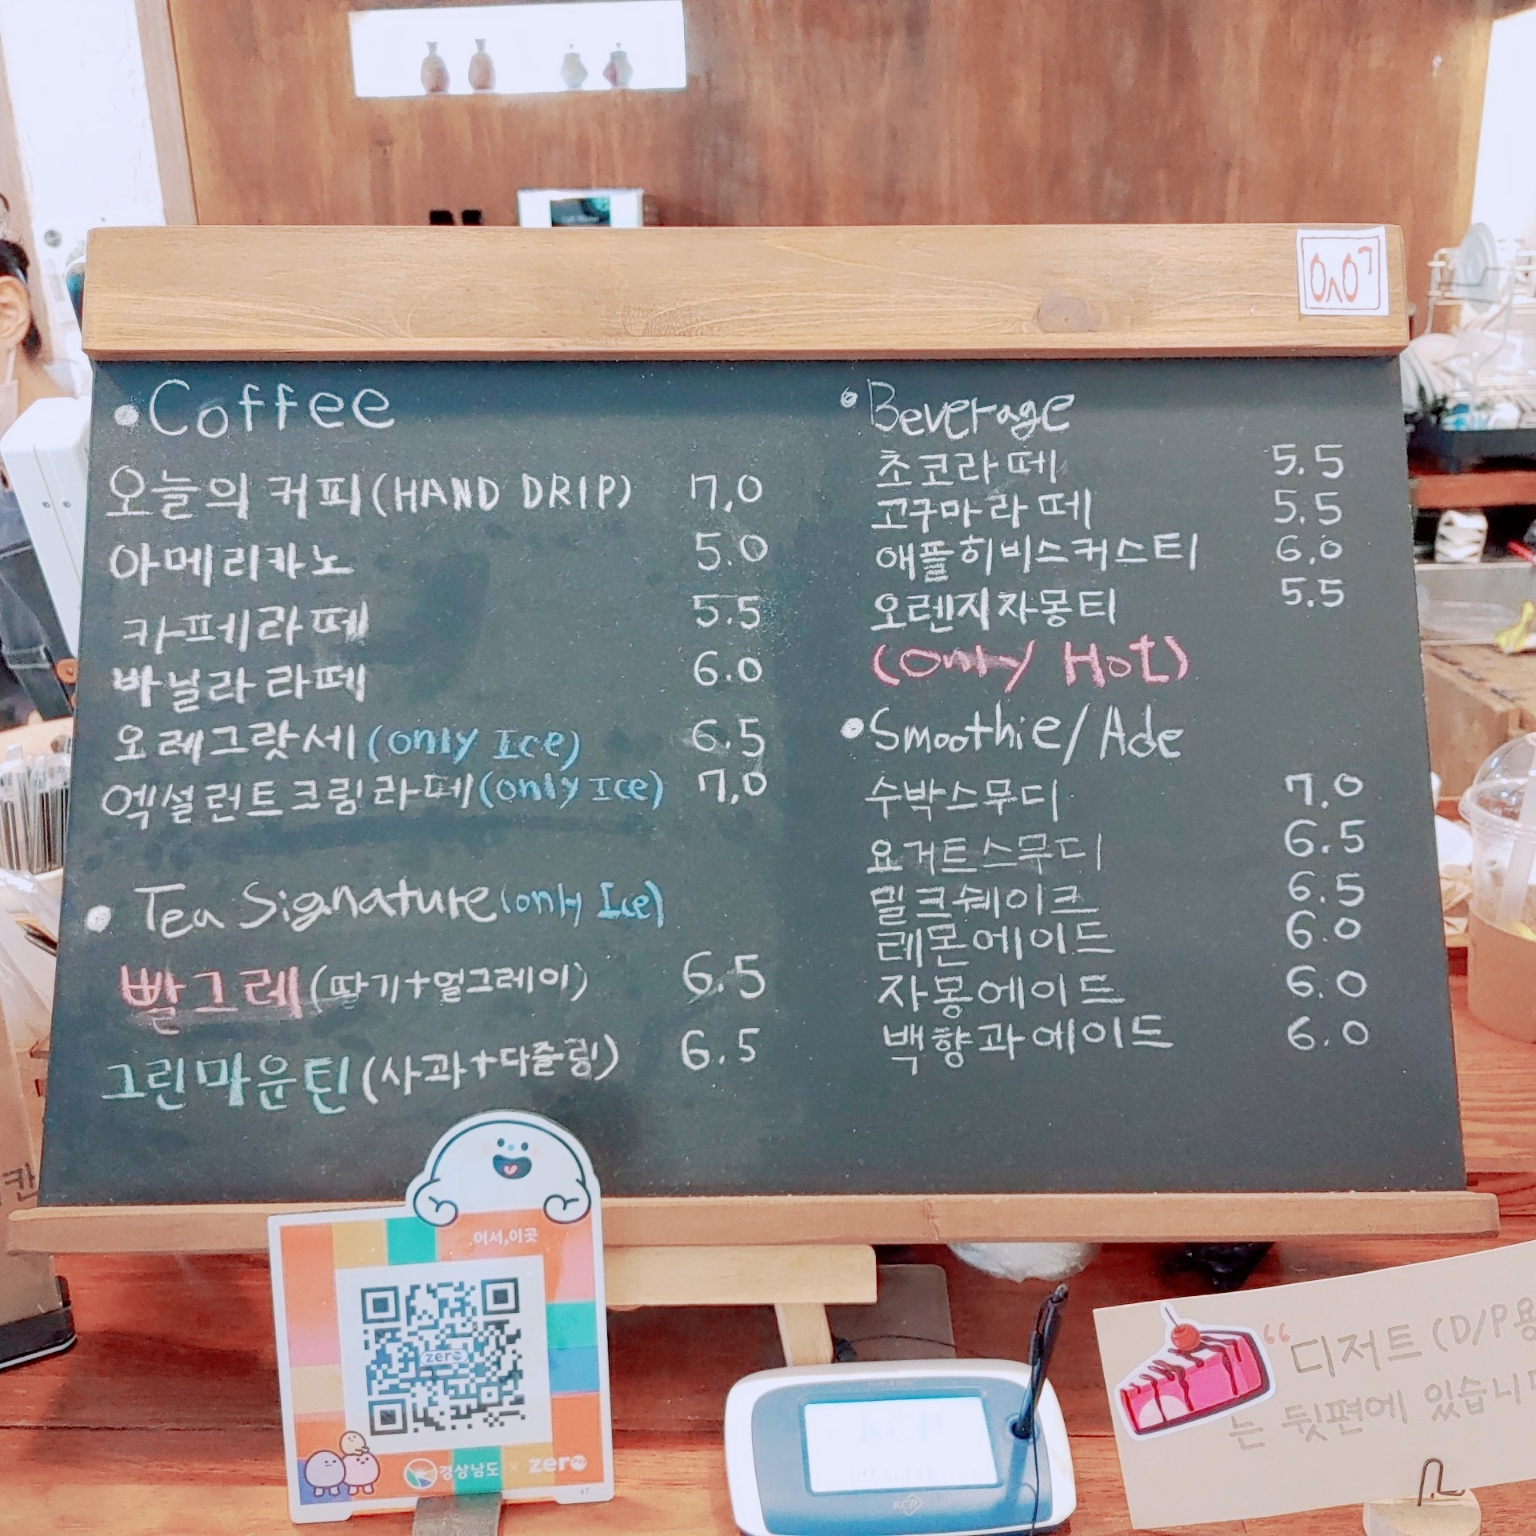 • Coffee
오늘의 커피 (HAND DRIP) 7.0
아메리카노 5.0
카페라떼 5.5
바닐라 라떼 6.0
오레그랏세 (only Ice) 6.5
엑설런트크림라떼 (only Ice) 7.0
• Tea Signature (only Ice)
빨그레 (딸기+얼그레이) 6.5
그린마운틴 (사과+다즐링) 6.5
• Beverage
초코라떼 5.5
고구마라떼 5.5
애플히비스커스티 6.0
오렌지자몽티 5.5
(Only Hot)
• Smoothie/Ade
수박스무디 7.0
요거트스무디 6.5
밀크쉐이크 6.5
레몬에이드 6.0
자몽에이드 6.0
백향과에이드 6.0
어서,이곳
zero
경상남도 × zero
KCP
KCP
"디저트 (D/P용
는 뒷편에 있습니